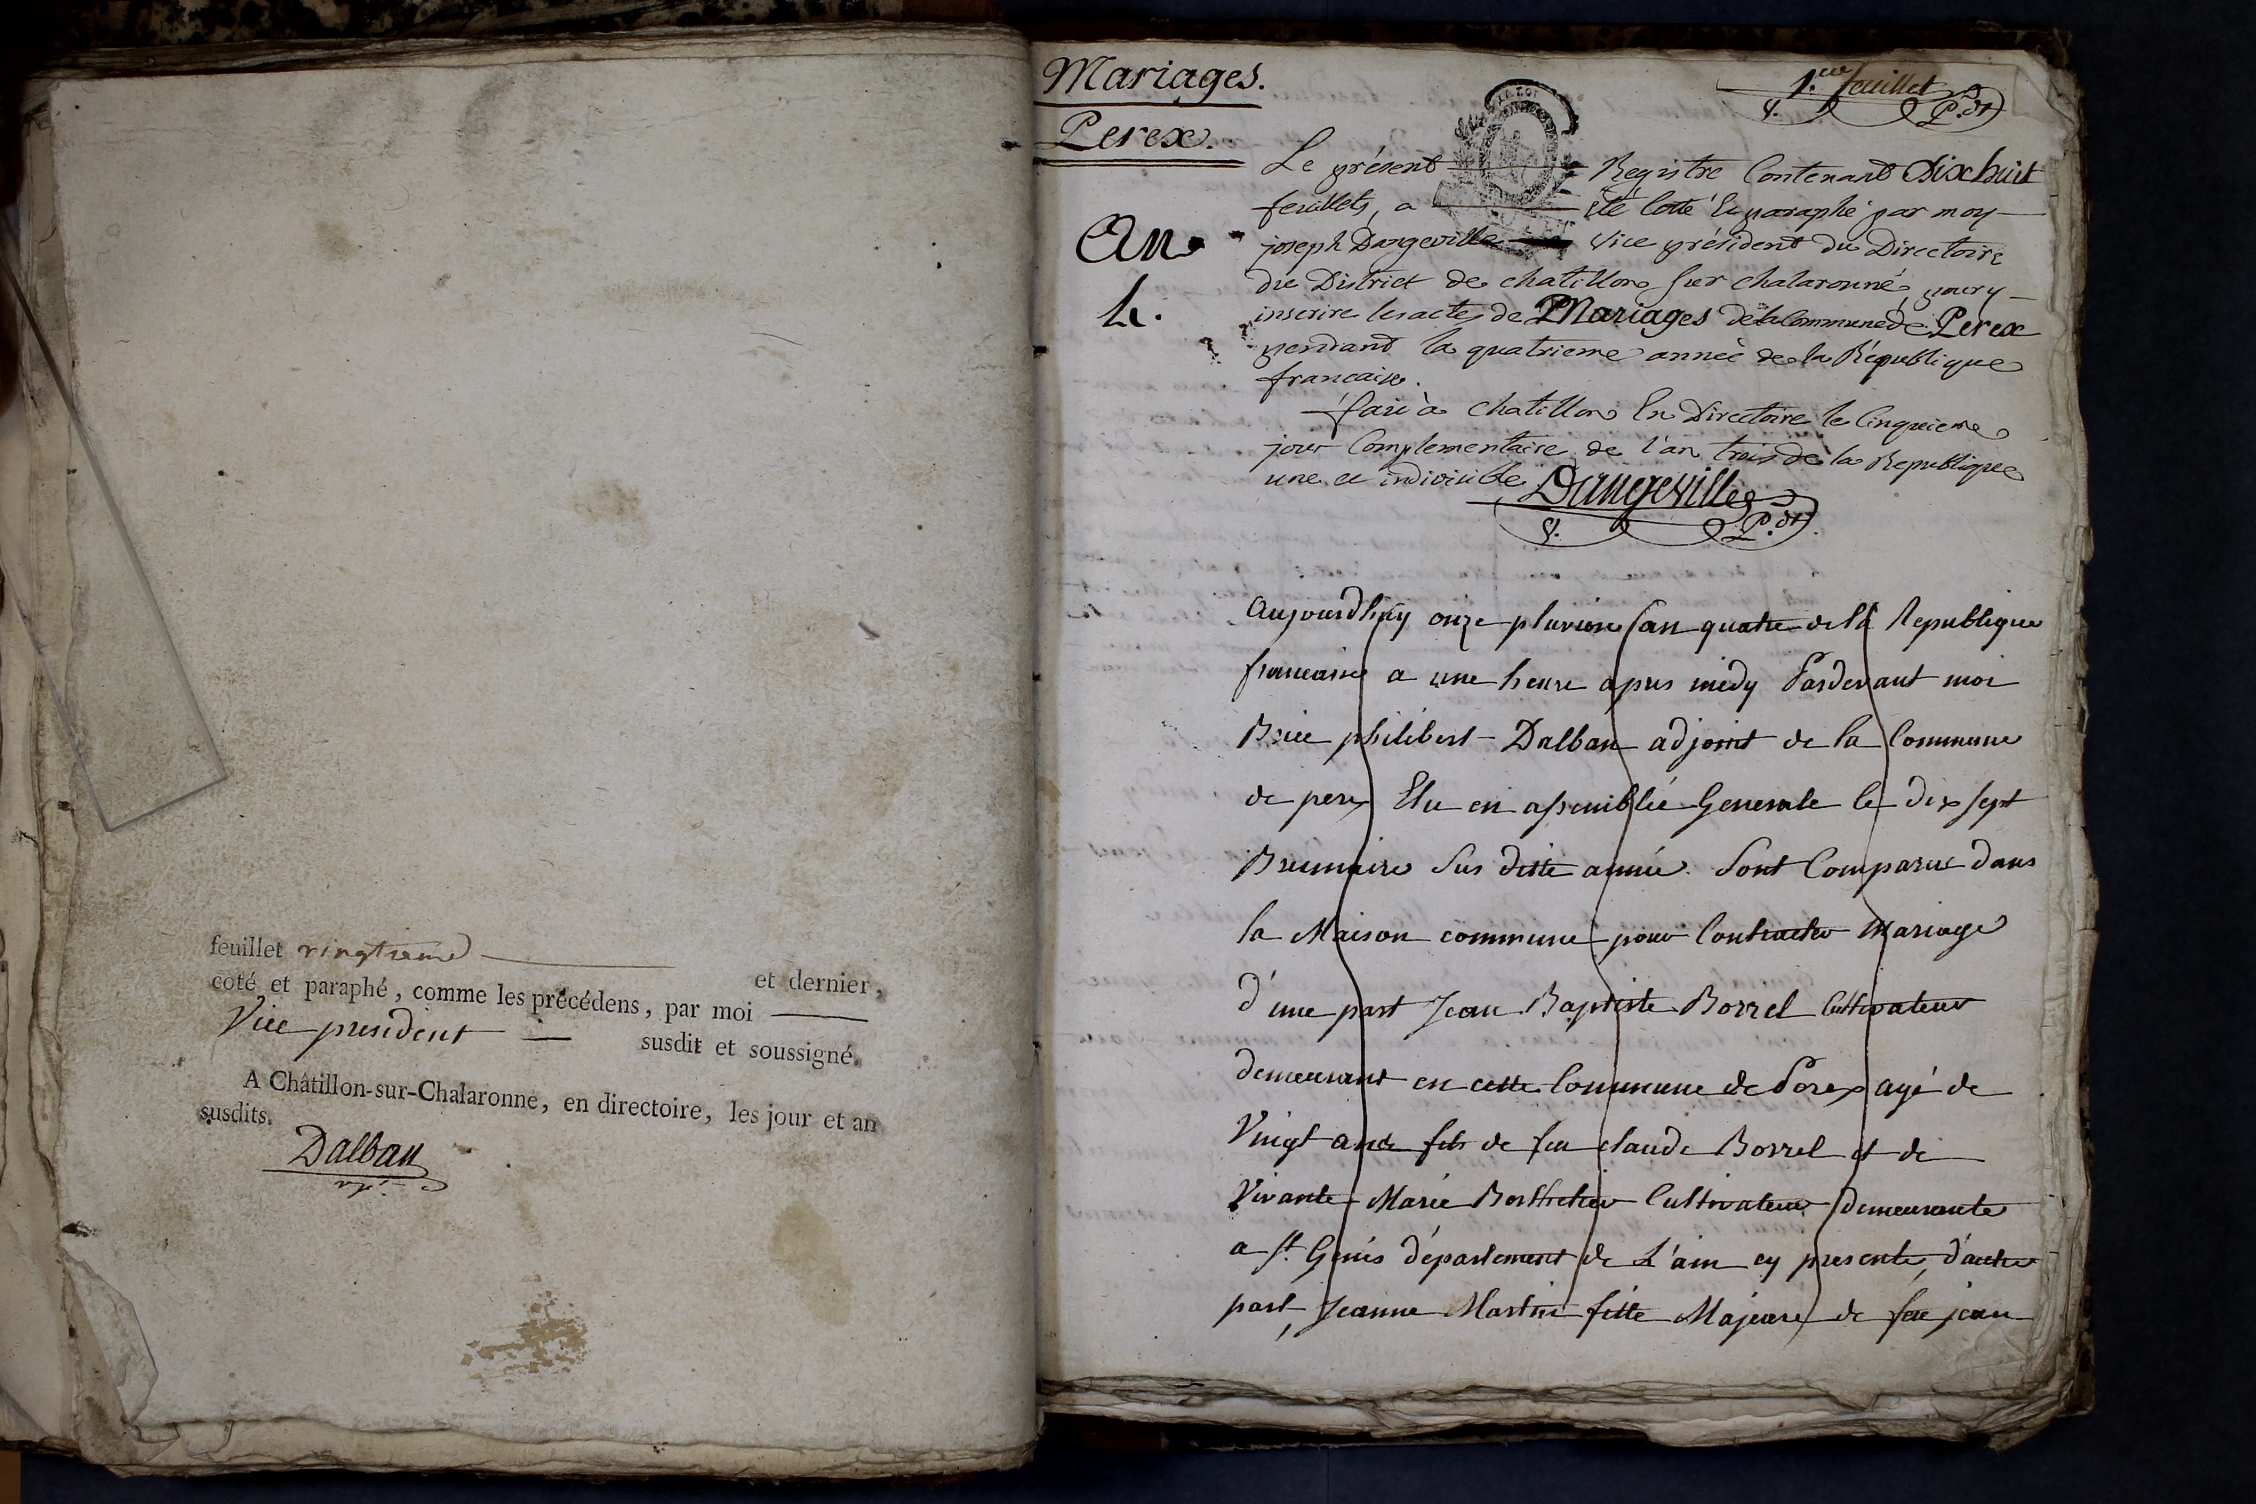 feuillet vingtieme et dernier,
coté et paraphé, comme les précédens, par moi
Vice president susdit et soussigné.
A Châtillon-sur-Chalaronne, en directoire, les jour et an
susdits.
Dalban
vpt.
Mariages.
Perex.
An
4.
1.er feuillet
V. P.dt
Le présent Registre Contenant Dix huit
feuillets, a été Cotté Et paraphé par moy
joseph Dangeville Vice président du Directoire
du District de chatillon sur chalaronne, pour y
inscrire les actes de Mariages de la Commune de Perex
pendant la quatrieme année de la République
francaise.
fait à Chatillon En Directoire le Cinquieme
jour Complementaire de l'an trois de la Republique
une et indivisible Dangeville
V. P.dt
Aujourdhuy onze pluviose l'an quatre de la Republique
francaise a une heure apres midy Pardevant moi
Brice philibert Dalban adjoint de la Commune
de perex Elu en assemblée Generale le dix sept
Brumaire Sus ditte année. Sont Comparus dans
la Maison commune pour Contracter Mariage
d'une part Jean Baptiste Borrel Cultivateur
demeurant en cette Commune de Perex agé de
Vingt ans fils de feu claude Borrel et de
Vivante Marie Berthelier Cultivateur demeurante
a st Genis département de L'ain cy presente, d'autre
part, Jeanne Martin fille Majeure de feu jean